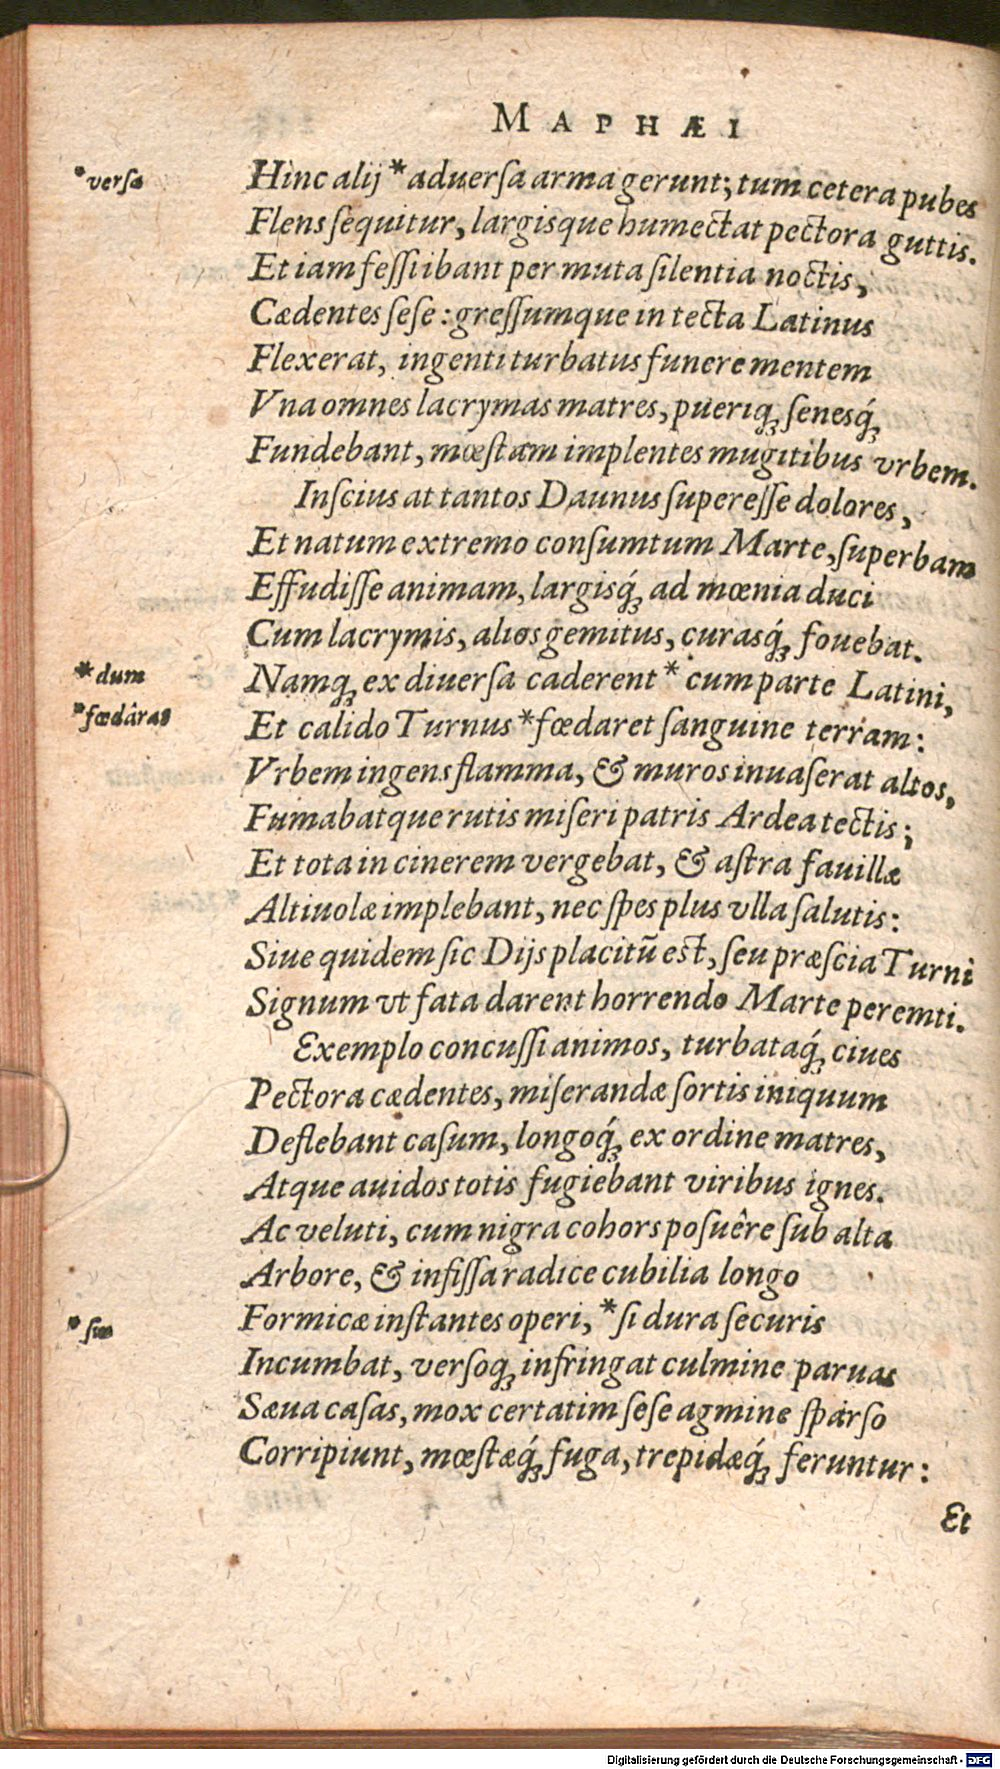 MAPHÆI
*versa
Hinc alij *aduerſa arma gerunt; tum cetera pubes
Flens ſequitur, largisque humectat pectora guttis.
Et iam feſſi ibant per muta ſilentia noctis,
Cædentes ſeſe: greſſumque in tecta Latinus
Flexerat, ingenti turbatus funere mentem
Vna omnes lacrymas matres, pueriq; ſenesq́;
Fundebant, mœſtam implentes mugitibus vrbem.
Inſcius at tantos Daunus ſupereſſe dolores,
Et natum extremo conſumtum Marte, ſuperbam
Effudiſſe animam, largisq́; ad mœnia duci
Cum lacrymis, alios gemitus, curasq́; fouebat.
*dum
Namq; ex diuerſa caderent *cum parte Latini,
*fœdâras
Et calido Turnus *fœdaret ſanguine terram:
Vrbem ingens flamma, & muros inuaſerat altos,
Fumabatque rutis miſeri patris Ardea tectis;
Et tota in cinerem vergebat, & aſtra fauillæ
Altiuolæ implebant, nec ſpes plus vlla ſalutis:
Siue quidem ſic Dijs placitũ est, ſeu præſcia Turni
Signum vt fata darent horrendo Marte peremti.
Exemplo concuſſi animos, turbataq́; ciues
Pectora cædentes, miſerandæ ſortis iniquum
Deflebant caſum, longoq́; ex ordine matres,
Atque auidos totis fugiebant viribus ignes.
Ac veluti, cum nigra cohors poſuêre ſub alta
Arbore, & infiſſa radice cubilia longo
*ſin
Formicæ inſtantes operi, *ſi dura ſecuris
Incumbat, verſoq; infringat culmine paruas
Sæua caſas, mox certatim ſeſe agmine ſparſo
Corripiunt, mœſtæq́; fuga, trepidæq́; feruntur:
Et
Digitalisierung gefördert durch die Deutsche Forschungsgemeinschaft - DFG